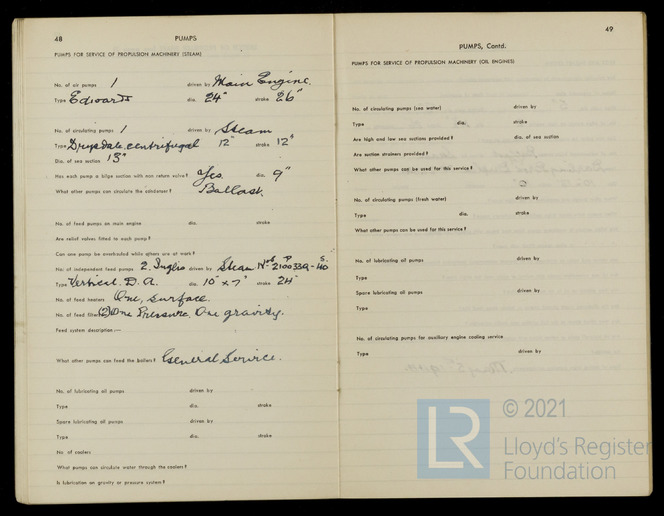 48
PUMPS
PUMPS FOR SERVICE OF PROPULSION MACHINERY (STEAM)
No. of air pumps 1 driven by Main Engine.
Type Edwards dia. 24" stroke 26"
No. of circulating pumps 1 driven by Steam
Type Drysdale, centrifugal 12" stroke 12"
Dia. of sea suction 13"
Has each pump a bilge suction with non return valve? Yes. dia. 9"
What other pumps can circulate the condenser? Ballast.
No. of feed pumps on main engine dia. stroke
Are relief valves fitted to each pump?
Can one pump be overhauled while others are at work?
No. of independent feed pumps 2. Inglis driven by Steam Nos. P 210033A - S 40
Type Vertical. D. A. dia. 10" x 7" stroke 24"
No. of feed heaters One, surface.
No. of feed filters (2) One Pressure. One gravity.
Feed system description:—
What other pumps can feed the boilers? General Service.
No. of lubricating oil pumps driven by
Type dia. stroke
Spare lubricating oil pumps driven by
Type dia. stroke
No. of coolers
What pumps can circulate water through the coolers?
Is lubrication on gravity or pressure system?
49
PUMPS, Contd.
PUMPS FOR SERVICE OF PROPULSION MACHINERY (OIL ENGINES)
No. of circulating pumps (sea water) driven by
Type dia. stroke
Are high and low sea suctions provided? dia. of sea suction
Are suction strainers provided?
What other pumps can be used for this service?
No. of circulating pumps (fresh water) driven by
Type dia. stroke
What other pumps can be used for this service?
No. of lubricating oil pumps driven by
Type
Spare lubricating oil pumps driven by
Type
No. of circulating pumps for auxiliary engine cooling service
Type driven by
LR © 2021
Lloyd's Register
Foundation